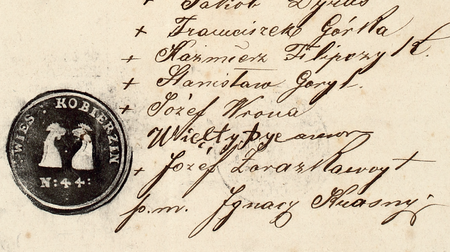 + Jakób Dyras
+ Franciszek Górka
+ Kazimierz Filipczyk.
+ Stanisław Goryl.
+ Józef Wrona
+ Józef
p.m. Ignacy Krasny
WIES KOBIERZIN
N:44: